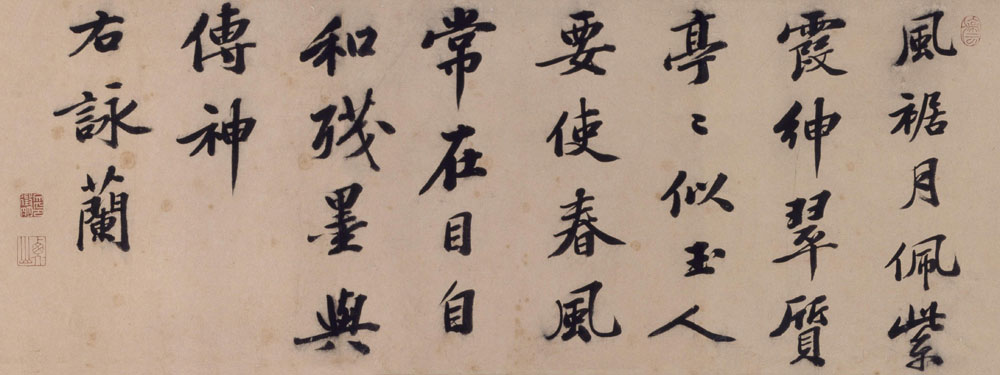 風裾月佩紫
霞紳翠質
亭〻似玉人
要使春風
常在目自
和殘墨與
傳神
右詠蘭